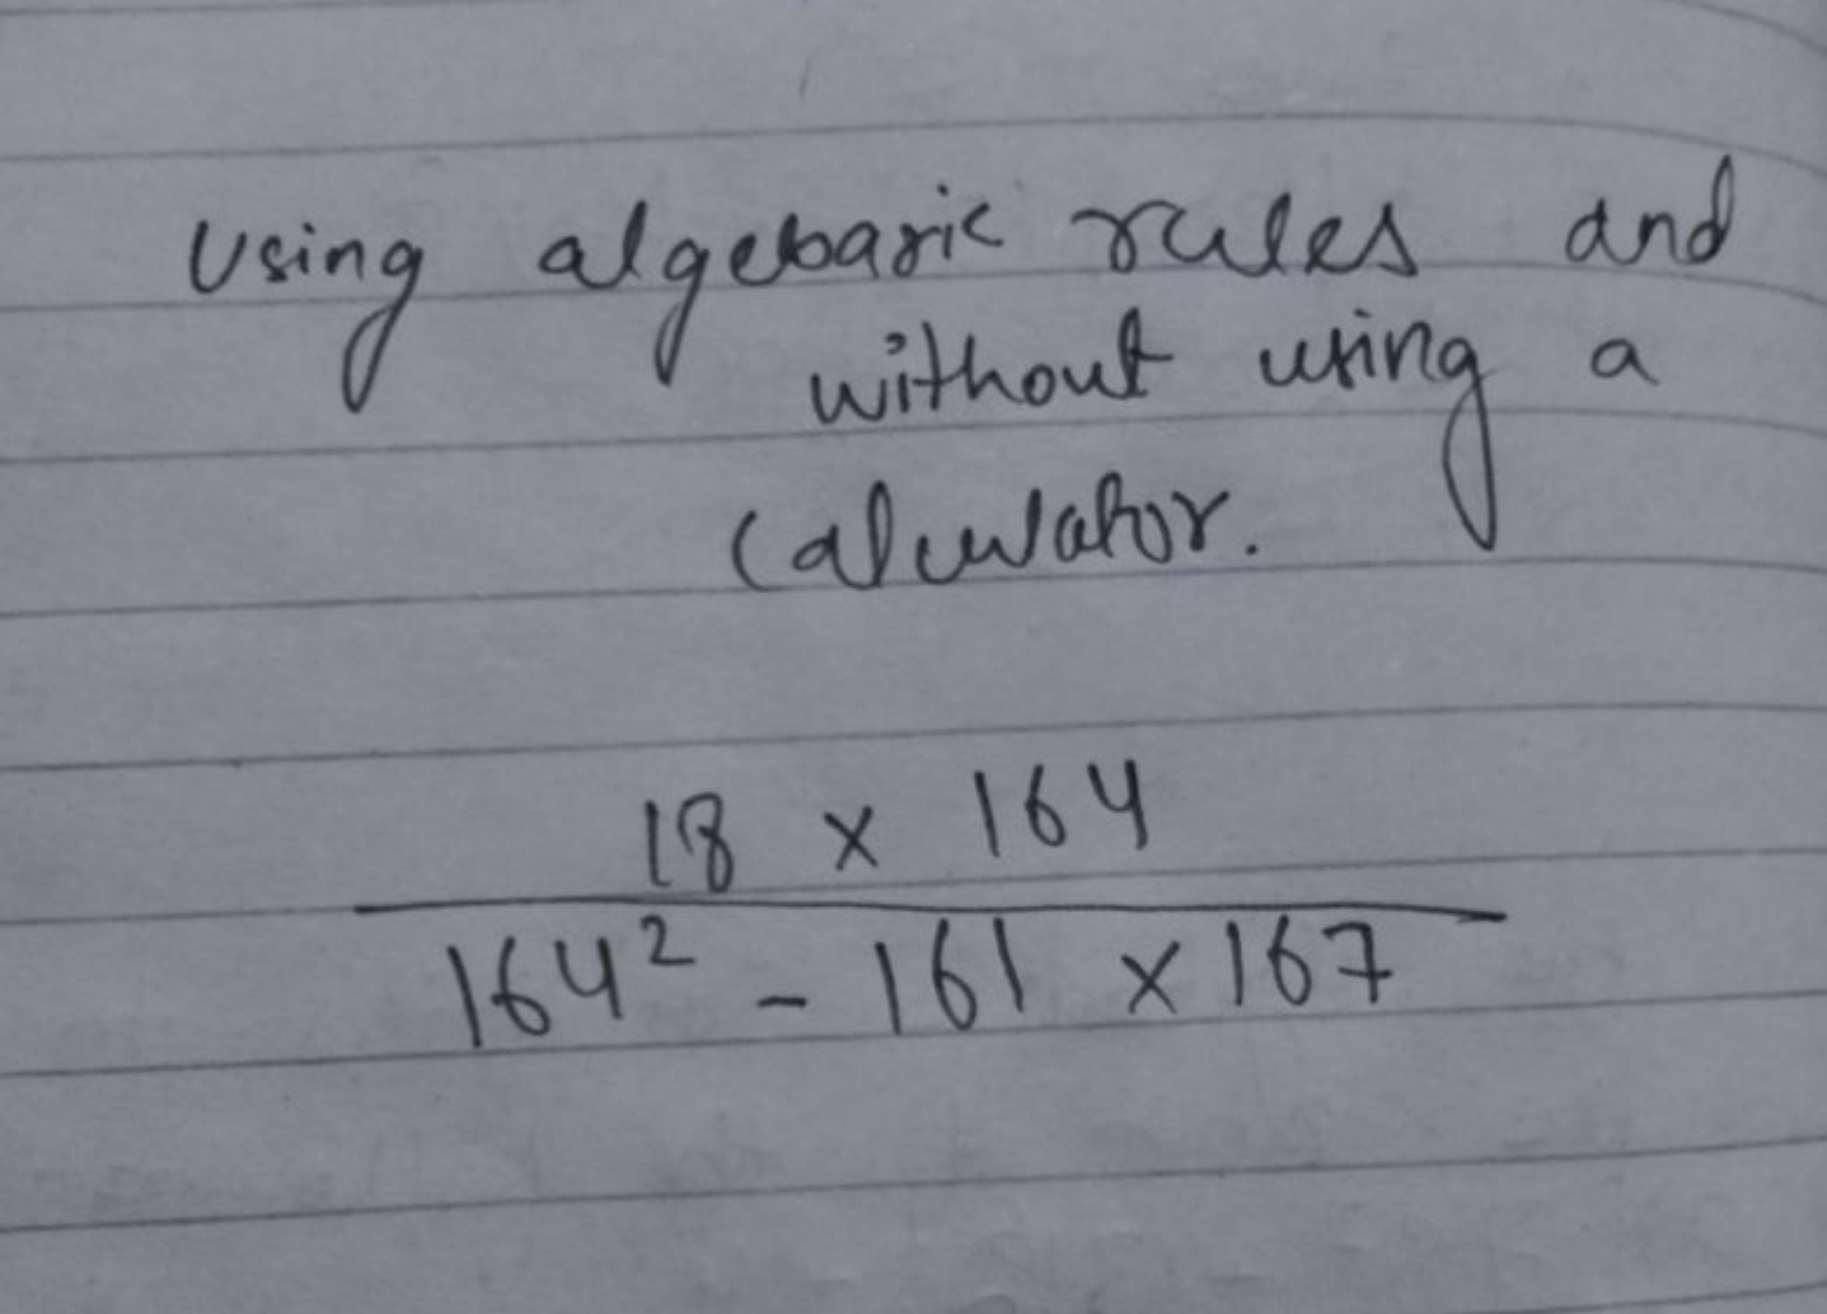 Using algebaric rules and
without using a
Calculator.
18 × 164
164² - 161 × 167